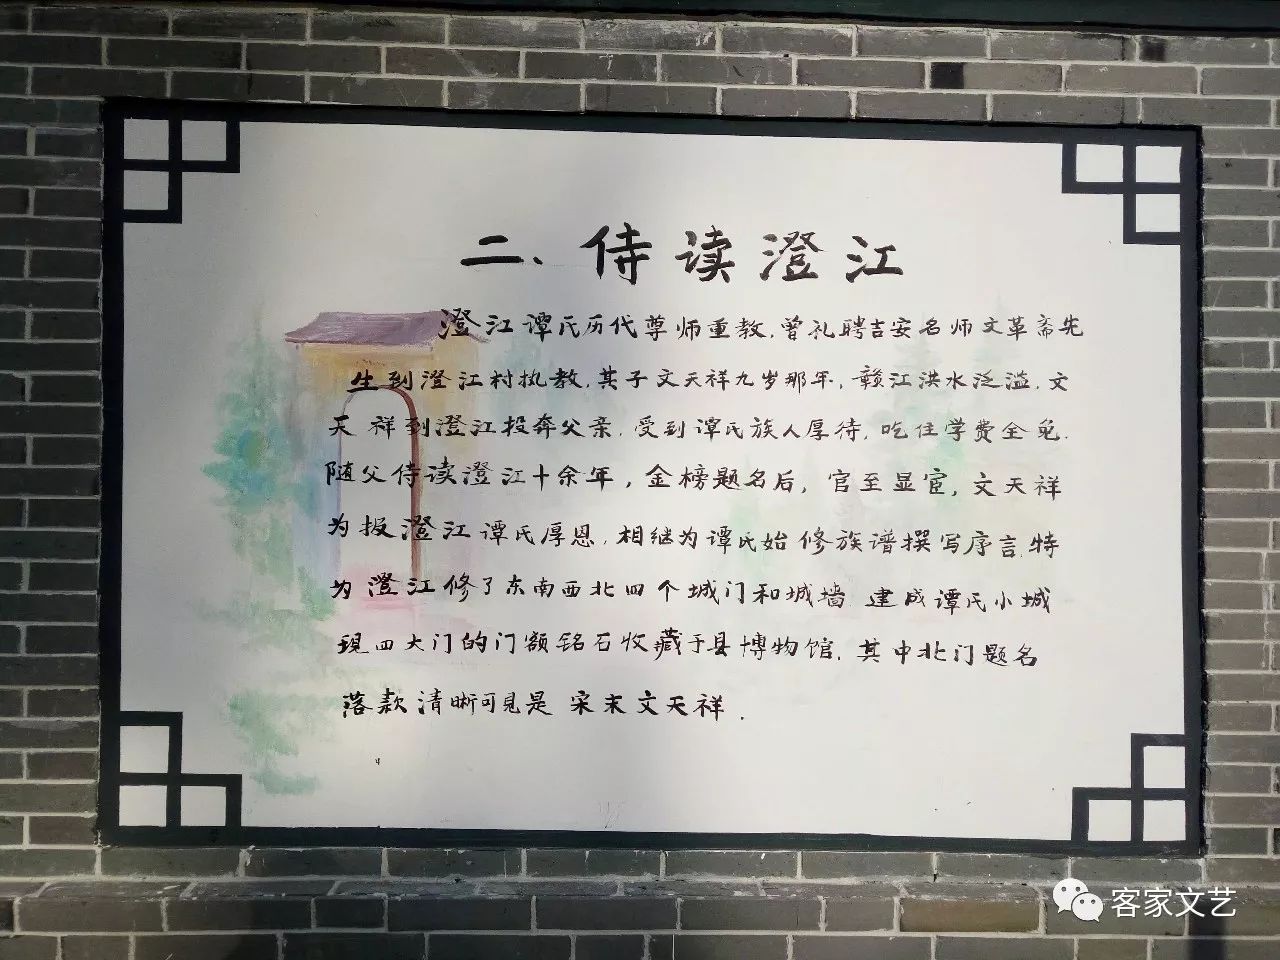 二、侍读澄江
澄江谭氏历代尊师重教,曾礼聘吉安名师文革斋先
生到澄江村执教,其子文天祥九岁那年,赣江洪水泛滥,文
天祥到澄江投奔父亲,受到谭氏族人厚待,吃住学费全免.
随父侍读澄江十余年,金榜题名后,官至显宦,文天祥
为报澄江谭氏厚恩,相继为谭氏始修族谱撰写序言,特
为澄江修了东南西北四个城门和城墙.建成谭氏小城
现四大门的门额铭石收藏于县博物馆,其中北门题名
落款清晰可见是宋末文天祥.
客家文艺